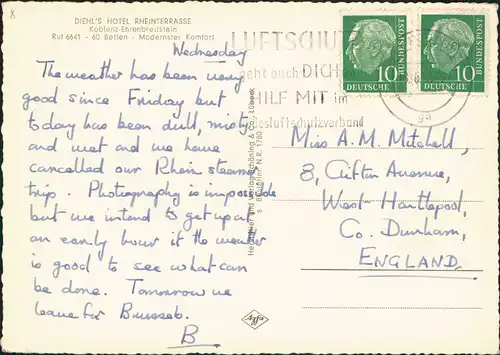 8
DIEHL'S HOTEL RHEINTERRASSE
Koblenz-Ehrenbreitstein
Ruf 6641 - 60 Betten - Modernster Komfort
Wednesday
The weather has been very
good since Friday but
today has been dull, misty
and wet and we have
cancelled our Rhein steamer
trip. Photography is impossible
but we intend to get up at
an early hour if the weather
is good to see what can
be done. Tomorrow we
leave for Brussels.
B
LUFTSCHUTZ
geht auch DICH
HILF MIT im
Bundesluftschutzverband
10
DEUTSCHE
BUNDESPOST
10
DEUTSCHE
BUNDESPOST
ga
Hersteller und Verlag Schöning & Co., Lübeck
N.R. 1780
Agfa
Miss A.M. Mitchell,
8, Clifton Avenue,
West-Hartlepool,
Co. Durham,
ENGLAND.